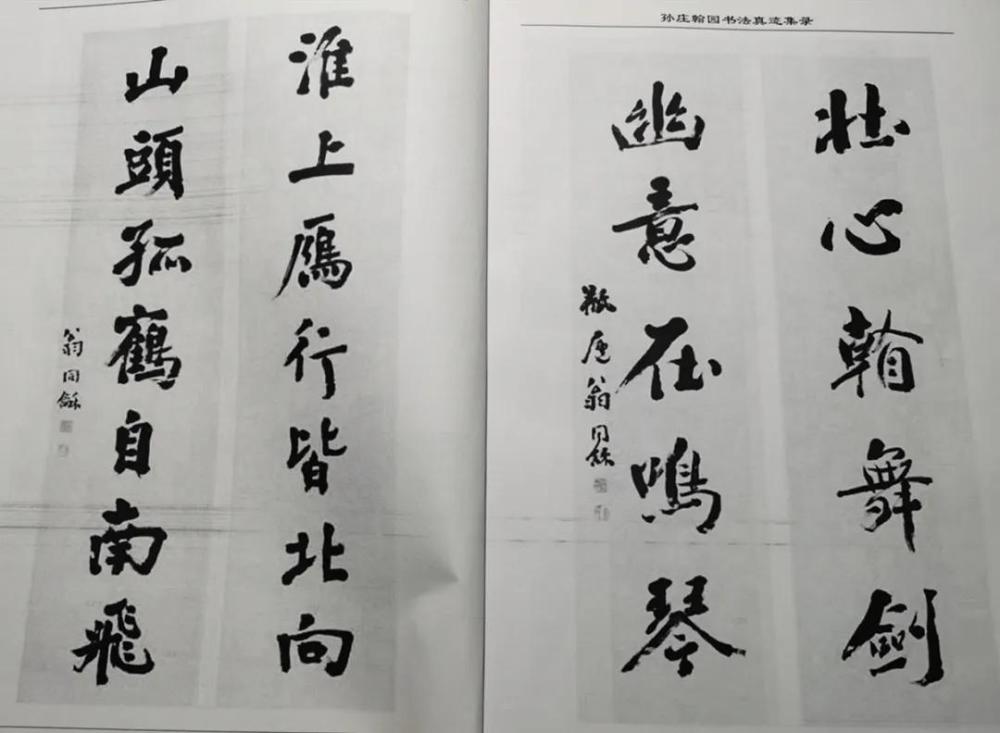 孙庄翰园书法真迹集录
壯心輸舞劍
幽意在鳴琴
翁同龢
淮上鴈行皆北向
山頭孤鶴自南飛
翁同龢